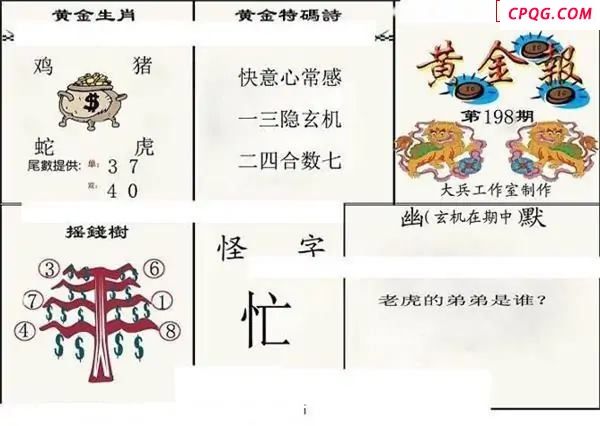 CPQG.COM
黄金生肖
鸡 猪
$
蛇 虎
尾數提供: 单: 3 7
双: 4 0
黄金特碼詩
快意心常感
一三隐玄机
二四合数七
黄金報
第198期
大兵工作室制作
摇錢樹
③ ⑥
⑦ ①
④ ⑧
怪字
忙
幽(玄机在期中)默
老虎的弟弟是谁?
i